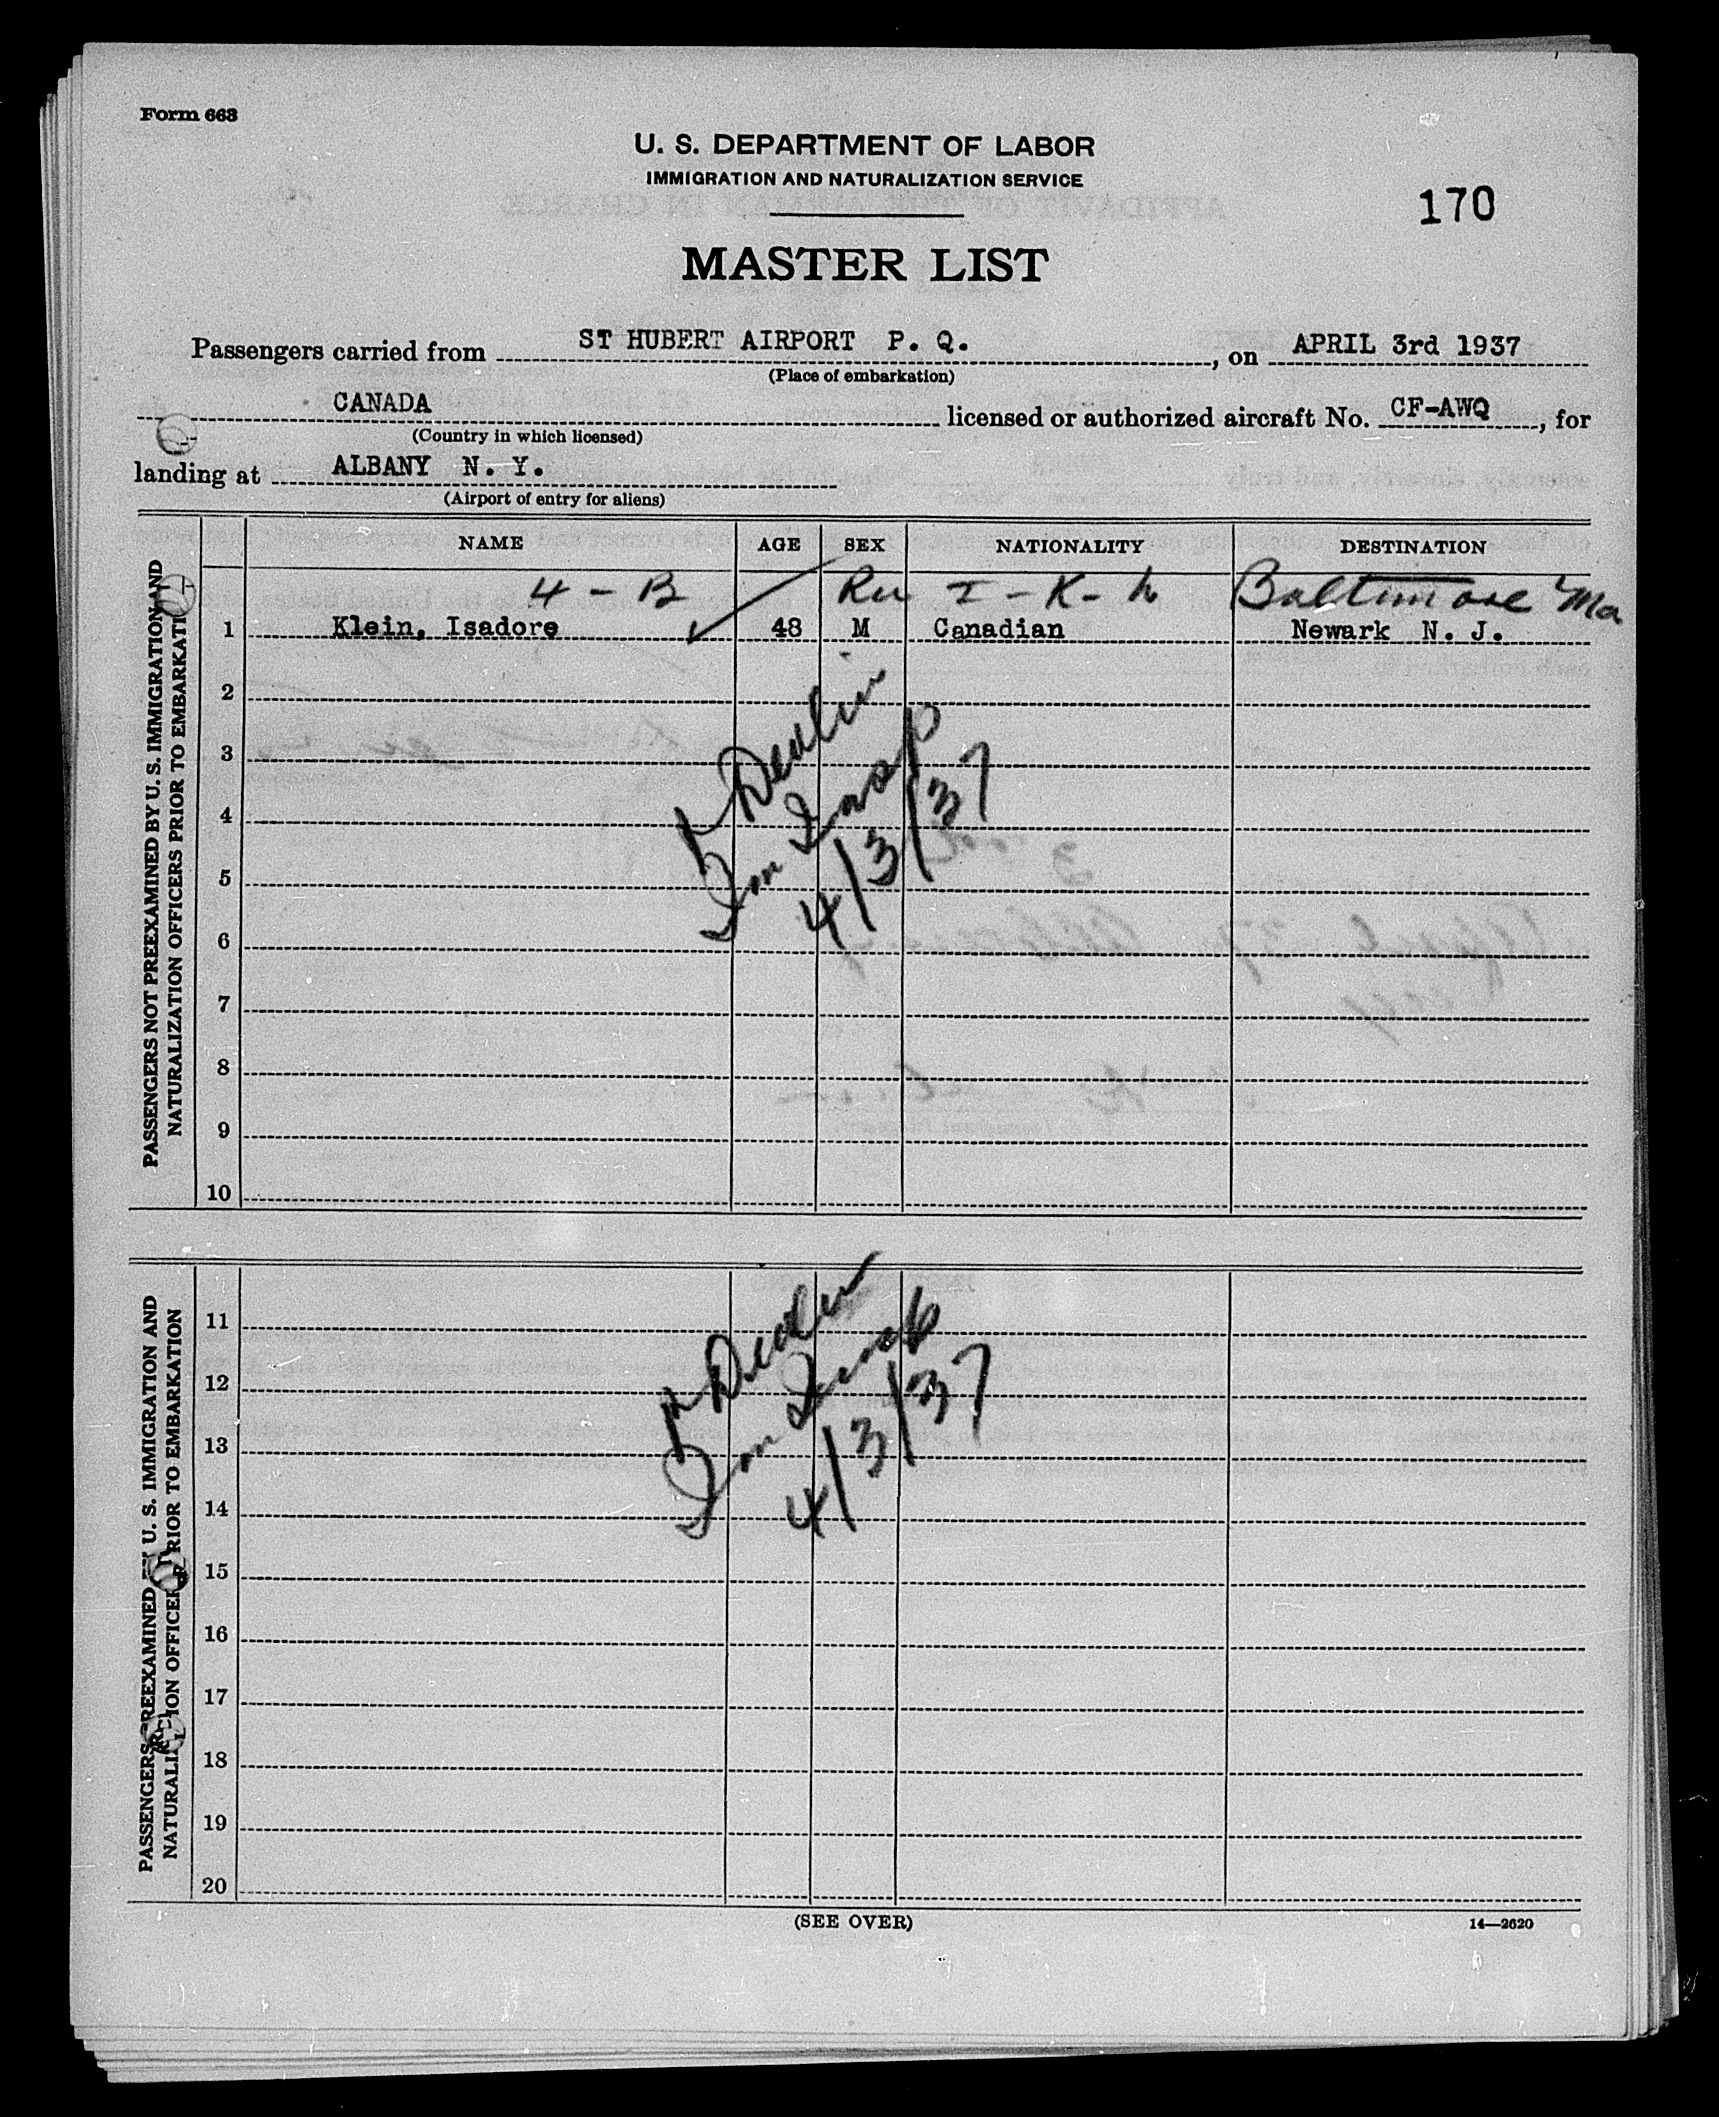 Form 663
U. S. DEPARTMENT OF LABOR
IMMIGRATION AND NATURALIZATION SERVICE
170
MASTER LIST
Passengers carried from ST HUBERT AIRPORT P. Q. , on APRIL 3rd 1937
(Place of embarkation)
CANADA licensed or authorized aircraft No. CF-AWQ, for
(Country in which licensed)
landing at ALBANY N. Y.
(Airport of entry for aliens)
NAME AGE SEX NATIONALITY DESTINATION
4 - B Baltimore Md
1 Klein, Isadore 48 M Canadian Newark N. J.
2
3
4
5
6
7
8
9
10
Devlin
Imm Insp
4/3/37
PASSENGERS NOT PREEXAMINED BY U. S. IMMIGRATION AND
NATURALIZATION OFFICERS PRIOR TO EMBARKATI
11
12
13
14
15
16
17
18
19
20
Devlin
Imm Insp
4/3/37
PASSENGERS PREEXAMINED BY U. S. IMMIGRATION AND
NATURALI ION OFFICER PRIOR TO EMBARKATION
(SEE OVER)
14—2620